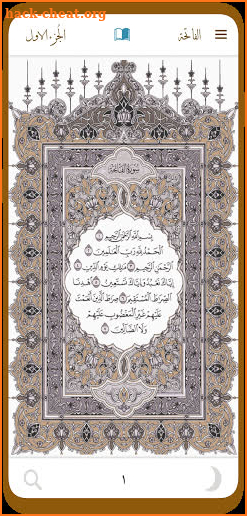 hack-cheat.org
الفاتحة
الجزء الاول
سورة الفاتحة
بسم الله الرحمن الرحيم ١
الحمد لله رب العلمين ٢
الرحمن الرحيم ٣ ملك يوم الدين ٤
إياك نعبد وإياك نستعين ٥ اهدنا
الصراط المستقيم ٦ صراط الذين أنعمت
عليهم غير المغضوب عليهم
ولا الضالين ٧
١